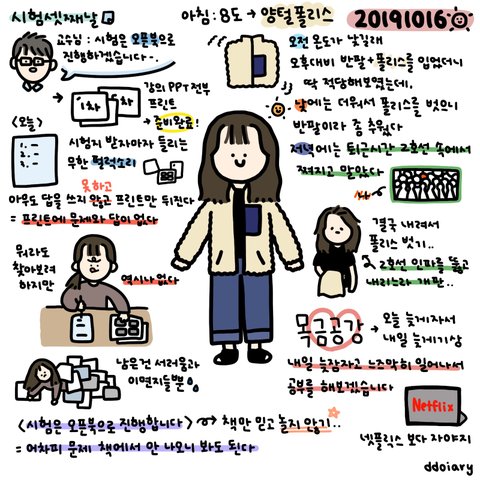 시험셋째날
아침:8도 → 양털플리스
20191016
교수님 : 시험은 오픈북으로
진행하겠습니다..
강의 PPT 전부
프린트
1차
2차
→ 준비완료!
<오늘>
시험지 받자마자 들리는
무한 펄럭소리
못하고
아무도 답을 쓰지 않고 프린트만 뒤진다
= 프린트에 문제와 답이 없다
뭐라도
찾아보려
하지만
역시나 없다
남은건 서러움과
이면지들뿐
오전 온도가 낮길래
오후대비 반팔+플리스를 입었더니
딱 적당해보였는데,
낮에는 더워서 플리스를 벗으니
반팔이라 좀 추웠다
저녁에는 퇴근시간 2호선 속에서
쪄지고 말았다
결국 내려서
플리스 벗기..
2호선 인파를 뚫고
내리느라 개판..
목금공강 → 오늘 늦게자서
내일 늦게기상
내일 늦잠자고 느즈막히 일어나서
공부를 해보겠습니다
Netflix
넷플릭스 보다 자야지
<시험은 오픈북으로 진행합니다> → 책만 믿고 놀지 않기..
= 어차피 문제 책에서 안 나오니 봐도 된다
ddoiary